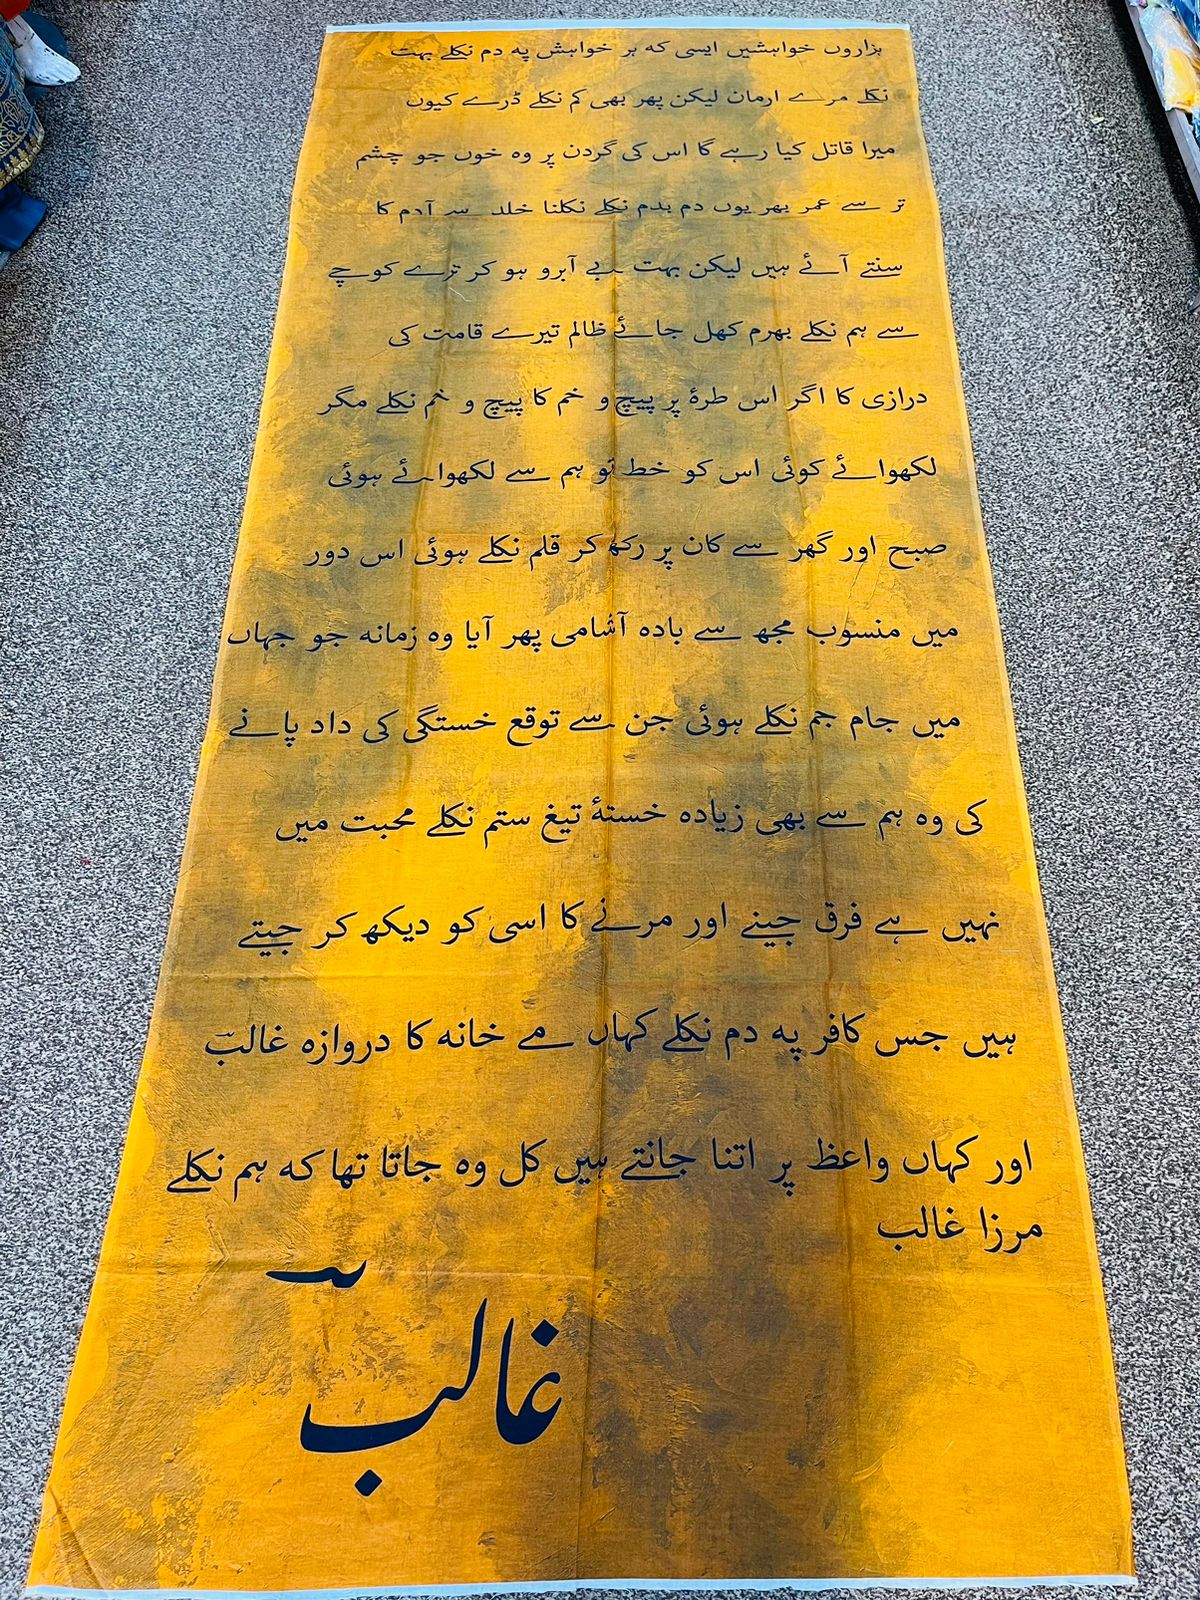 ہزاروں خواہشیں ایسی کہ ہر خواہش پہ دم نکلے بہت
نکلے مرے ارمان لیکن پھر بھی کم نکلے ڈرے کیوں
میرا قاتل کیا رہے گا اس کی گردن پر وہ خوں جو چشم
تر سے عمر بھر یوں دم بدم نکلے نکلنا خلد سے آدم کا
سنتے آئے ہیں لیکن بہت بے آبرو ہو کر ترے کوچے
سے ہم نکلے بھرم کھل جائے ظالم تیرے قامت کی
درازی کا اگر اس طرۂ پر پیچ و خم کا پیچ و خم نکلے مگر
لکھوائے کوئی اس کو خط تو ہم سے لکھوائے ہوئی
صبح اور گھر سے کان پر رکھ کر قلم نکلے ہوئی اس دور
میں منسوب مجھ سے بادہ آشامی پھر آیا وہ زمانہ جو جہاں
میں جام جم نکلے ہوئی جن سے توقع خستگی کی داد پانے
کی وہ ہم سے بھی زیادہ خستۂ تیغ ستم نکلے محبت میں
نہیں ہے فرق جینے اور مرنے کا اسی کو دیکھ کر جیتے
ہیں جس کافر پہ دم نکلے کہاں مے خانہ کا دروازہ غالبؔ
اور کہاں واعظ پر اتنا جانتے ہیں کل وہ جاتا تھا کہ ہم نکلے
مرزا غالب
غالبؔ